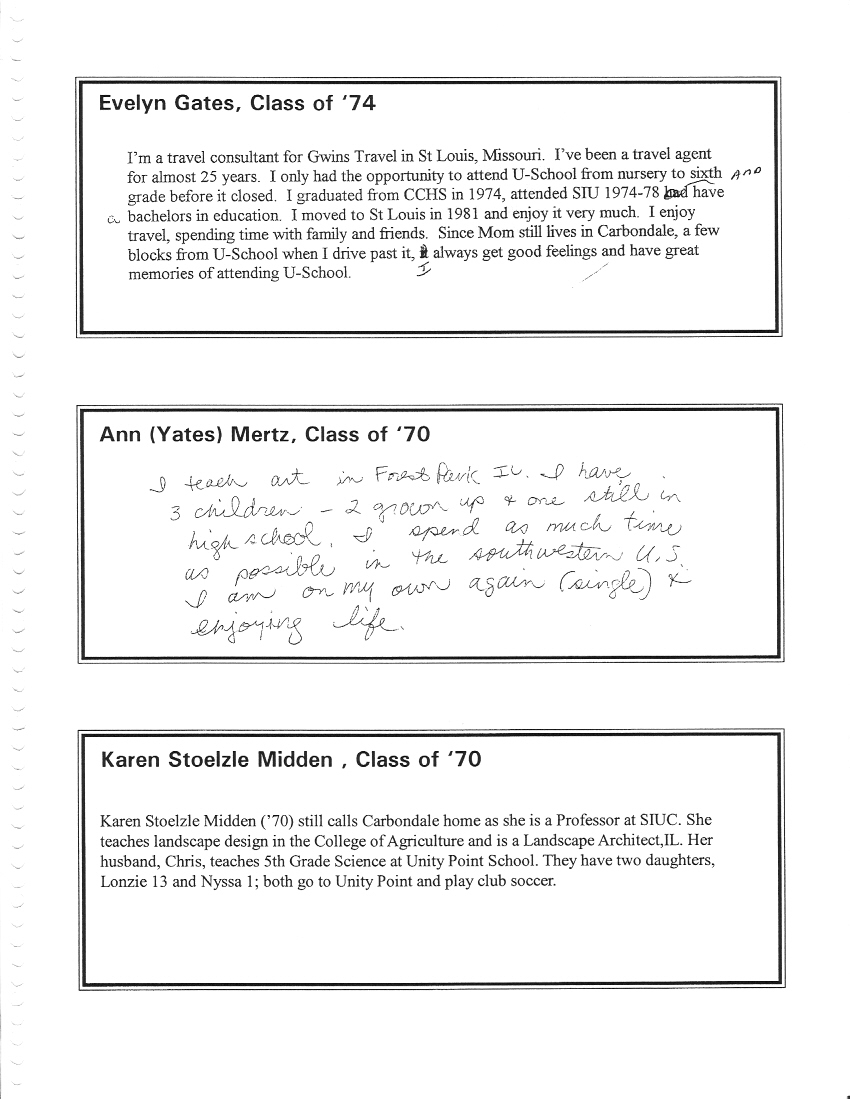 Evelyn Gates, Class of '74
I'm a travel consultant for Gwins Travel in St Louis, Missouri. I've been a travel agent
for almost 25 years. I only had the opportunity to attend U-School from nursery to sixth AND
grade before it closed. I graduated from CCHS in 1974, attended SIU 1974-78 had have
a bachelors in education. I moved to St Louis in 1981 and enjoy it very much. I enjoy
travel, spending time with family and friends. Since Mom still lives in Carbondale, a few
blocks from U-School when I drive past it, always get good feelings and have great
I
memories of attending U-School.
Ann (Yates) Mertz, Class of '70
I teach art in Forest Park IL. I have
3 children - 2 grown up & one still in
high school. I spend as much time
as possible in the southwestern U.S.
I am on my own again (single) &
enjoying life.
Karen Stoelzle Midden , Class of '70
Karen Stoelzle Midden ('70) still calls Carbondale home as she is a Professor at SIUC. She
teaches landscape design in the College of Agriculture and is a Landscape Architect,IL. Her
husband, Chris, teaches 5th Grade Science at Unity Point School. They have two daughters,
Lonzie 13 and Nyssa 1; both go to Unity Point and play club soccer.